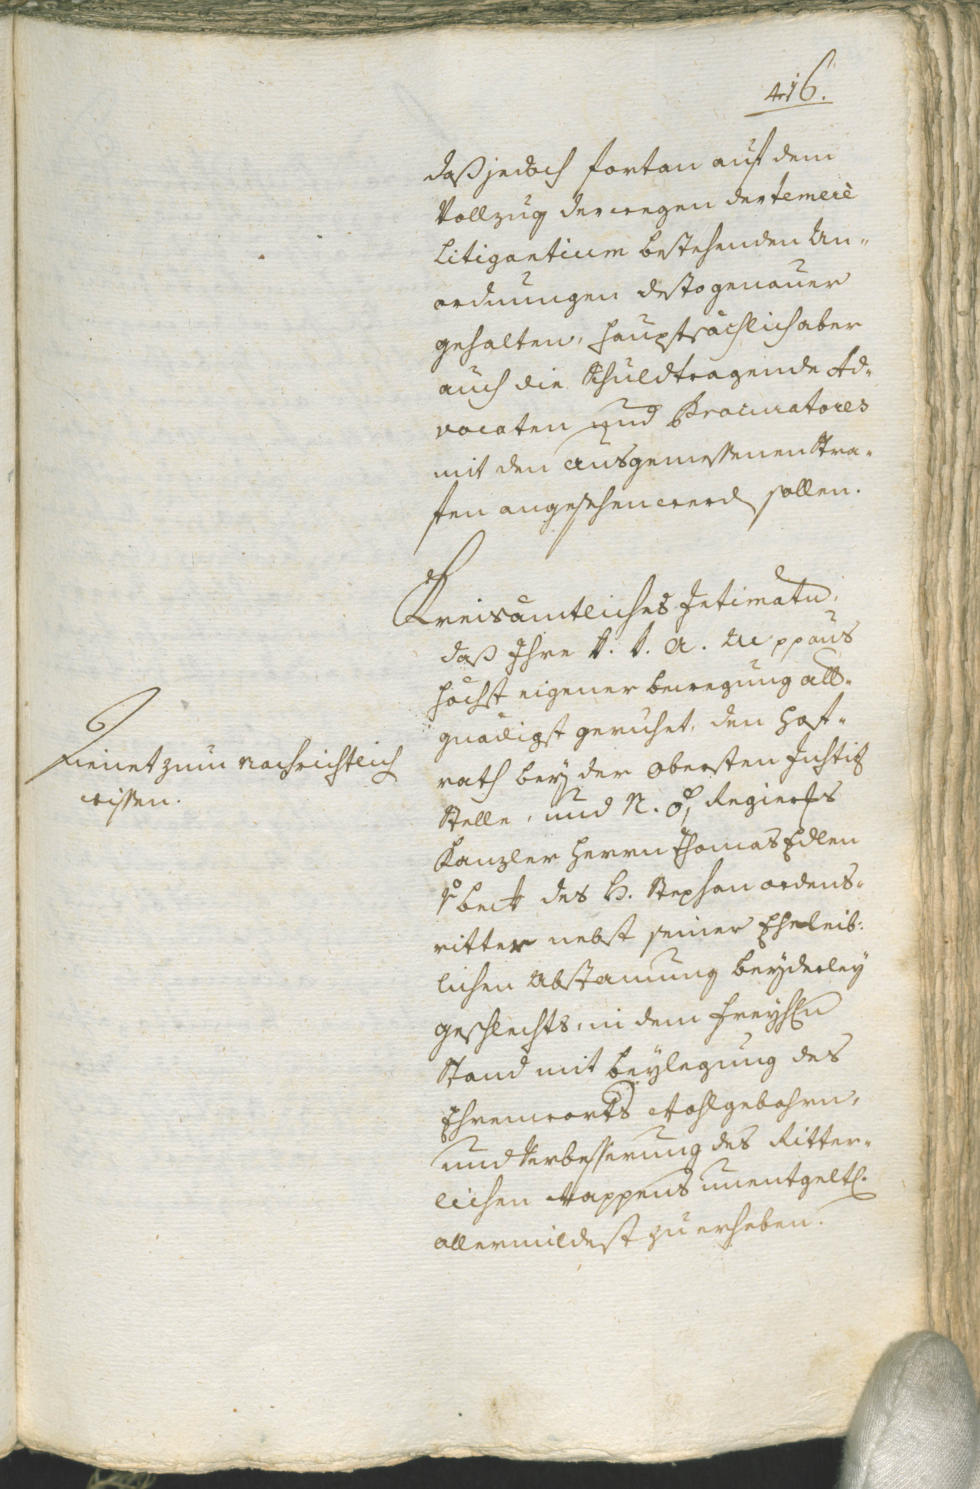 416.
daß jedoch fortan auf dem
Vollzug der wegen der temerè
Litigantium bestehenden An„
ordnungen desto genauer
gehalten, hauptsächlich aber
auch die Schuldtragende Ad„
vocaten und Procuratores
mit den ausgemessenen Stra„
fen angesehen werd sollen.
Kreisämtliches Intimatū,
daß Ihre k. k. a. Mt aus
höchst eigener bewegung all„
gnädigst geruhet, den Hof„
rath bey der Obersten Justitz
Stelle, und N. Ö. Regierfs
Kanzler Herrn Thomas Edlen
v Beck des H. Stephan ordens„
ritter nebst seiner Eheleib„
lichen Abstamung beyderley
geschlechts, in dem Freyhn
Stand mit beylegung des
Ehrenworts Wohlgebohrn,
und Verbesserung des Ritter„
lichen Wappens unentgeltl.
allermildest zu erheben.
Dienet zum nachrichtlich
wissen.